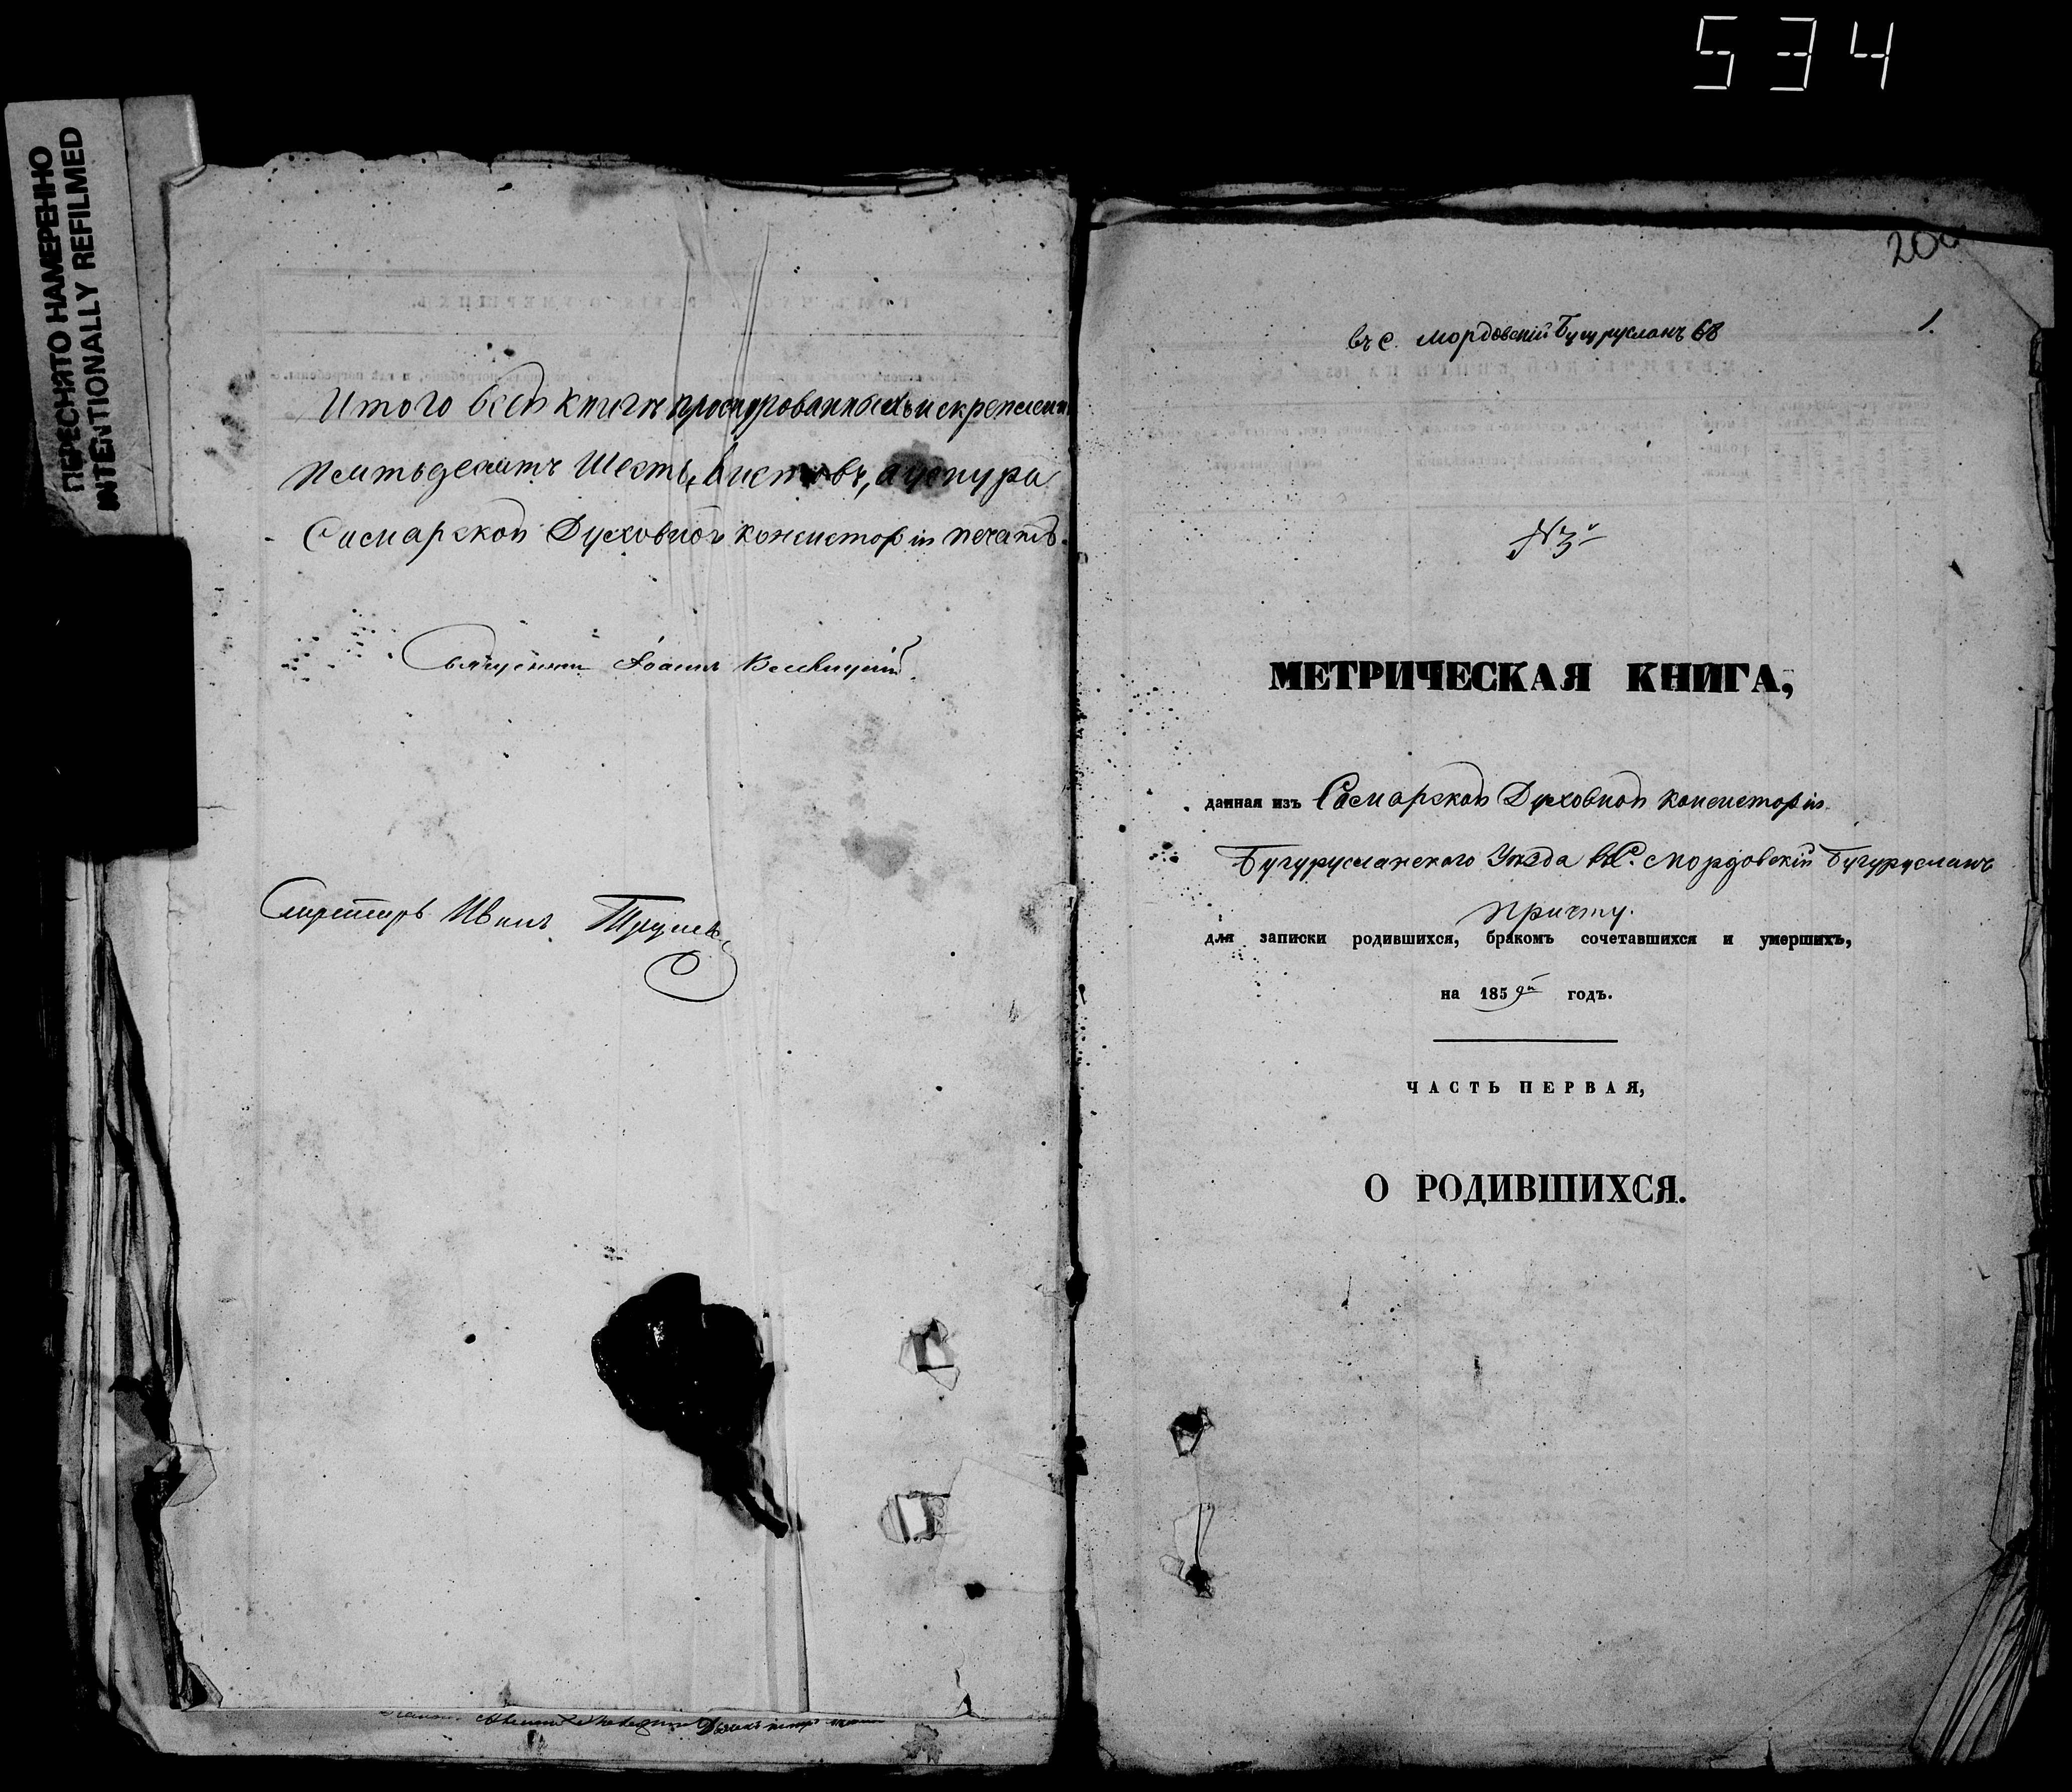 534
ПЕРЕСНЯТО НАМЕРЕННО
INTENTIONALLY REFILMED
Итого всей книги прошнурованныхъ и скреплен
Пятьдесятъ Шесть Листовъ, а у шнура
Самарской Духовной консисторіи печать.
Священникъ Іоаннъ
Секретарь Иванъ
1.
въ с. Мордовскій Бугурусланъ 68
№ 3й
МЕТРИЧЕСКАЯ КНИГА,
данная изъ Самарской Духовной консисторіи
Бугурусланскаго Уезда въ С. Мордовскій Бугурусланъ
причту.
для записки родившихся, бракомъ сочетавшихся и умершихъ,
на 1859й годъ.
ЧАСТЬ ПЕРВАЯ,
О РОДИВШИХСЯ.